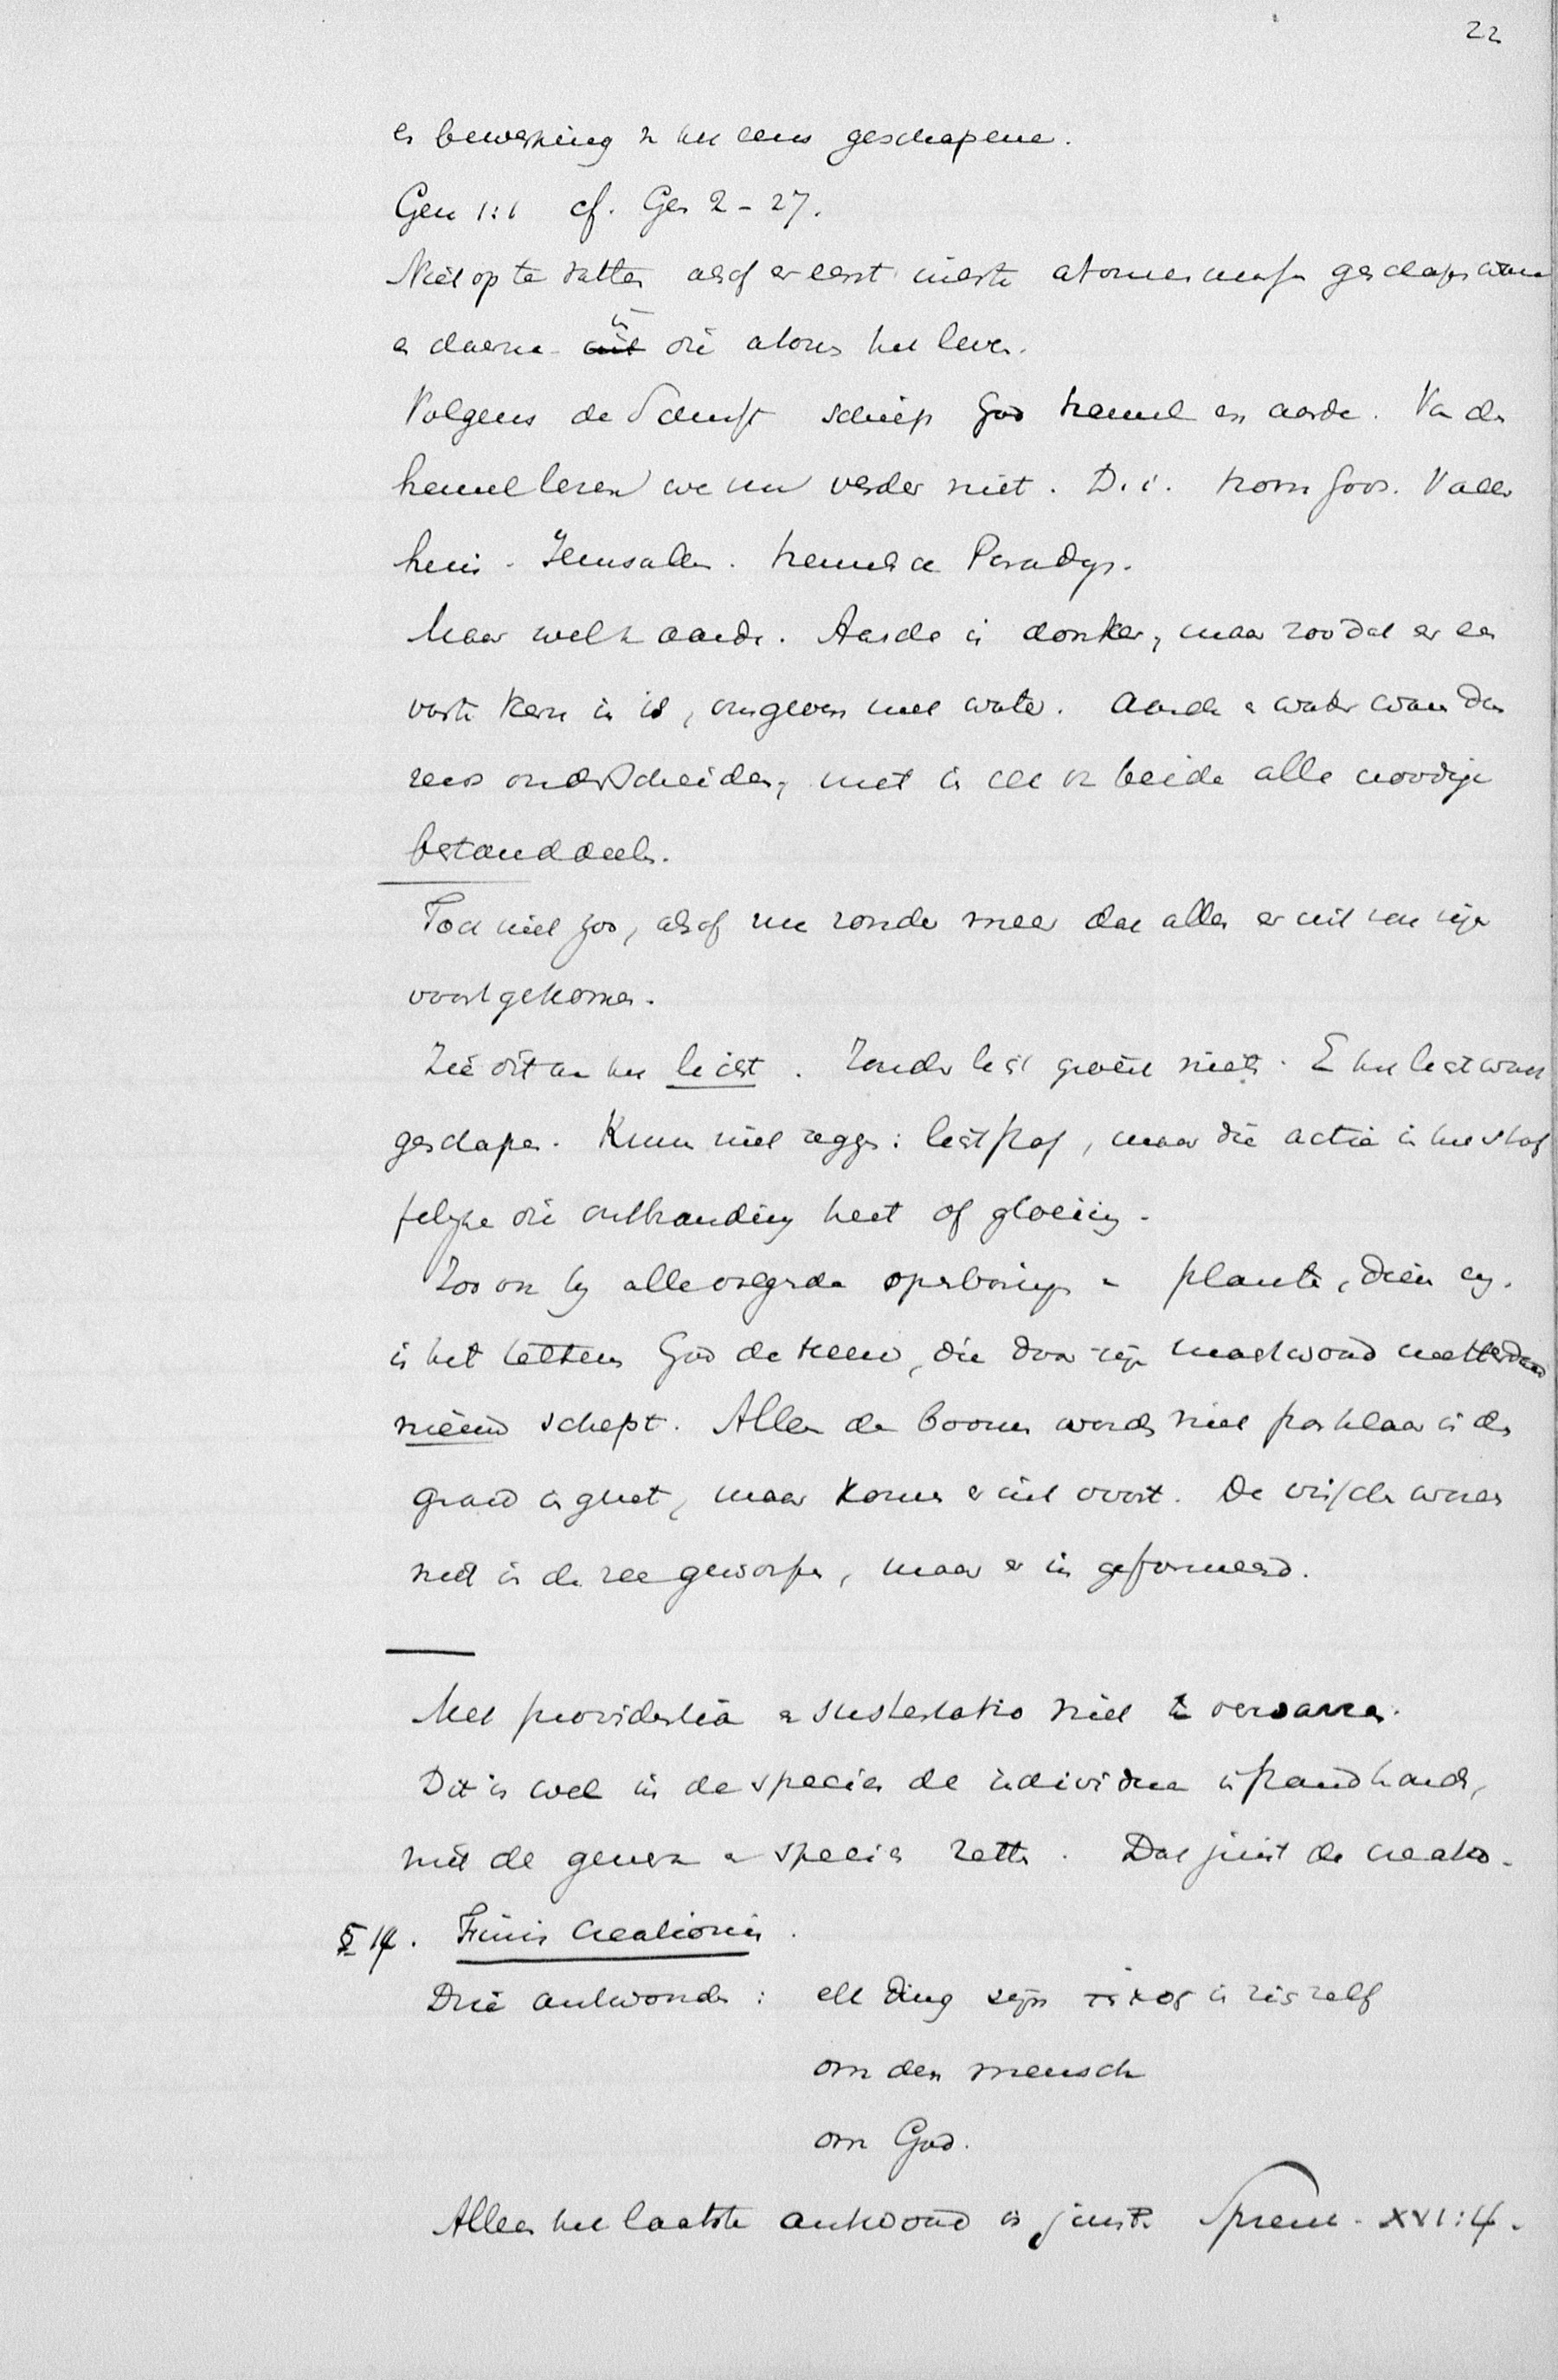 22
en bewerking v. het eens geschapene.
Gen 1:1 cf. Gen 2 - 27.
Niet op te vatten alsof er eerst atomen geschapen waren
en daarna in die atomen het leven.
Volgens de Schrift schiep God hemel en aarde. Van den
hemel lezen we nu verder niet. D.i. troon Gods. Vader
huis. Jerusalem. hemelsch Paradijs.
Maar welke aarde. Aarde is donker, maar zoo dat er een
vaste kern in is, omgeven met water. Aarde en water waren dan
reeds onderscheiden, niet in beide alle noodige
bestanddeelen.
Toch niet zoo, alsof nu zonder meer dan alles er uit zou zijn
voortgekomen.
Zie dit aan het licht. Zonder licht groeit niets. En het licht werd
geschapen. Kunt niet zeggen: lichtstof, maar die actie in het stof
felijke die ontbranding heet of gloeiing.
Zoo ook bij alle volgende openbaringen v. planten, dieren enz.
is het telkens God de Heere, die door zijn machtwoord metterdaad
nieuw schept. Alleen de boomen werden niet pasklaar in den
grond ingezet, maar komen er uit voort. De visschen werden
niet in de zee geworpen, maar er in geformeerd.
Met providentia en sustentatio niet te verwarren.
Dit is wel in de species de individua in stand houden,
niet de genera en species zetten. Dat juist de creatio.
§ 14. Finis Creationis.
Drie antwoorden: elk ding zijn τέλος in zich zelf
om den mensch
om God.
Alleen het laatste antwoord is juist. Spreuk. XVI:4.